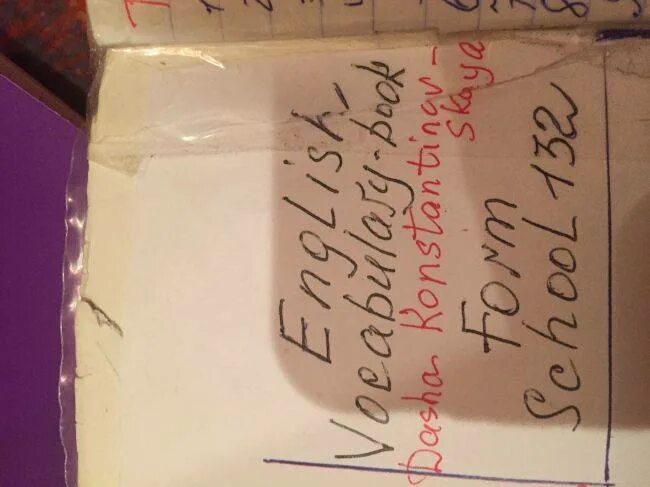 English
Vocabulary-book
Dasha Konstantinov-
skaya
Form
School 132